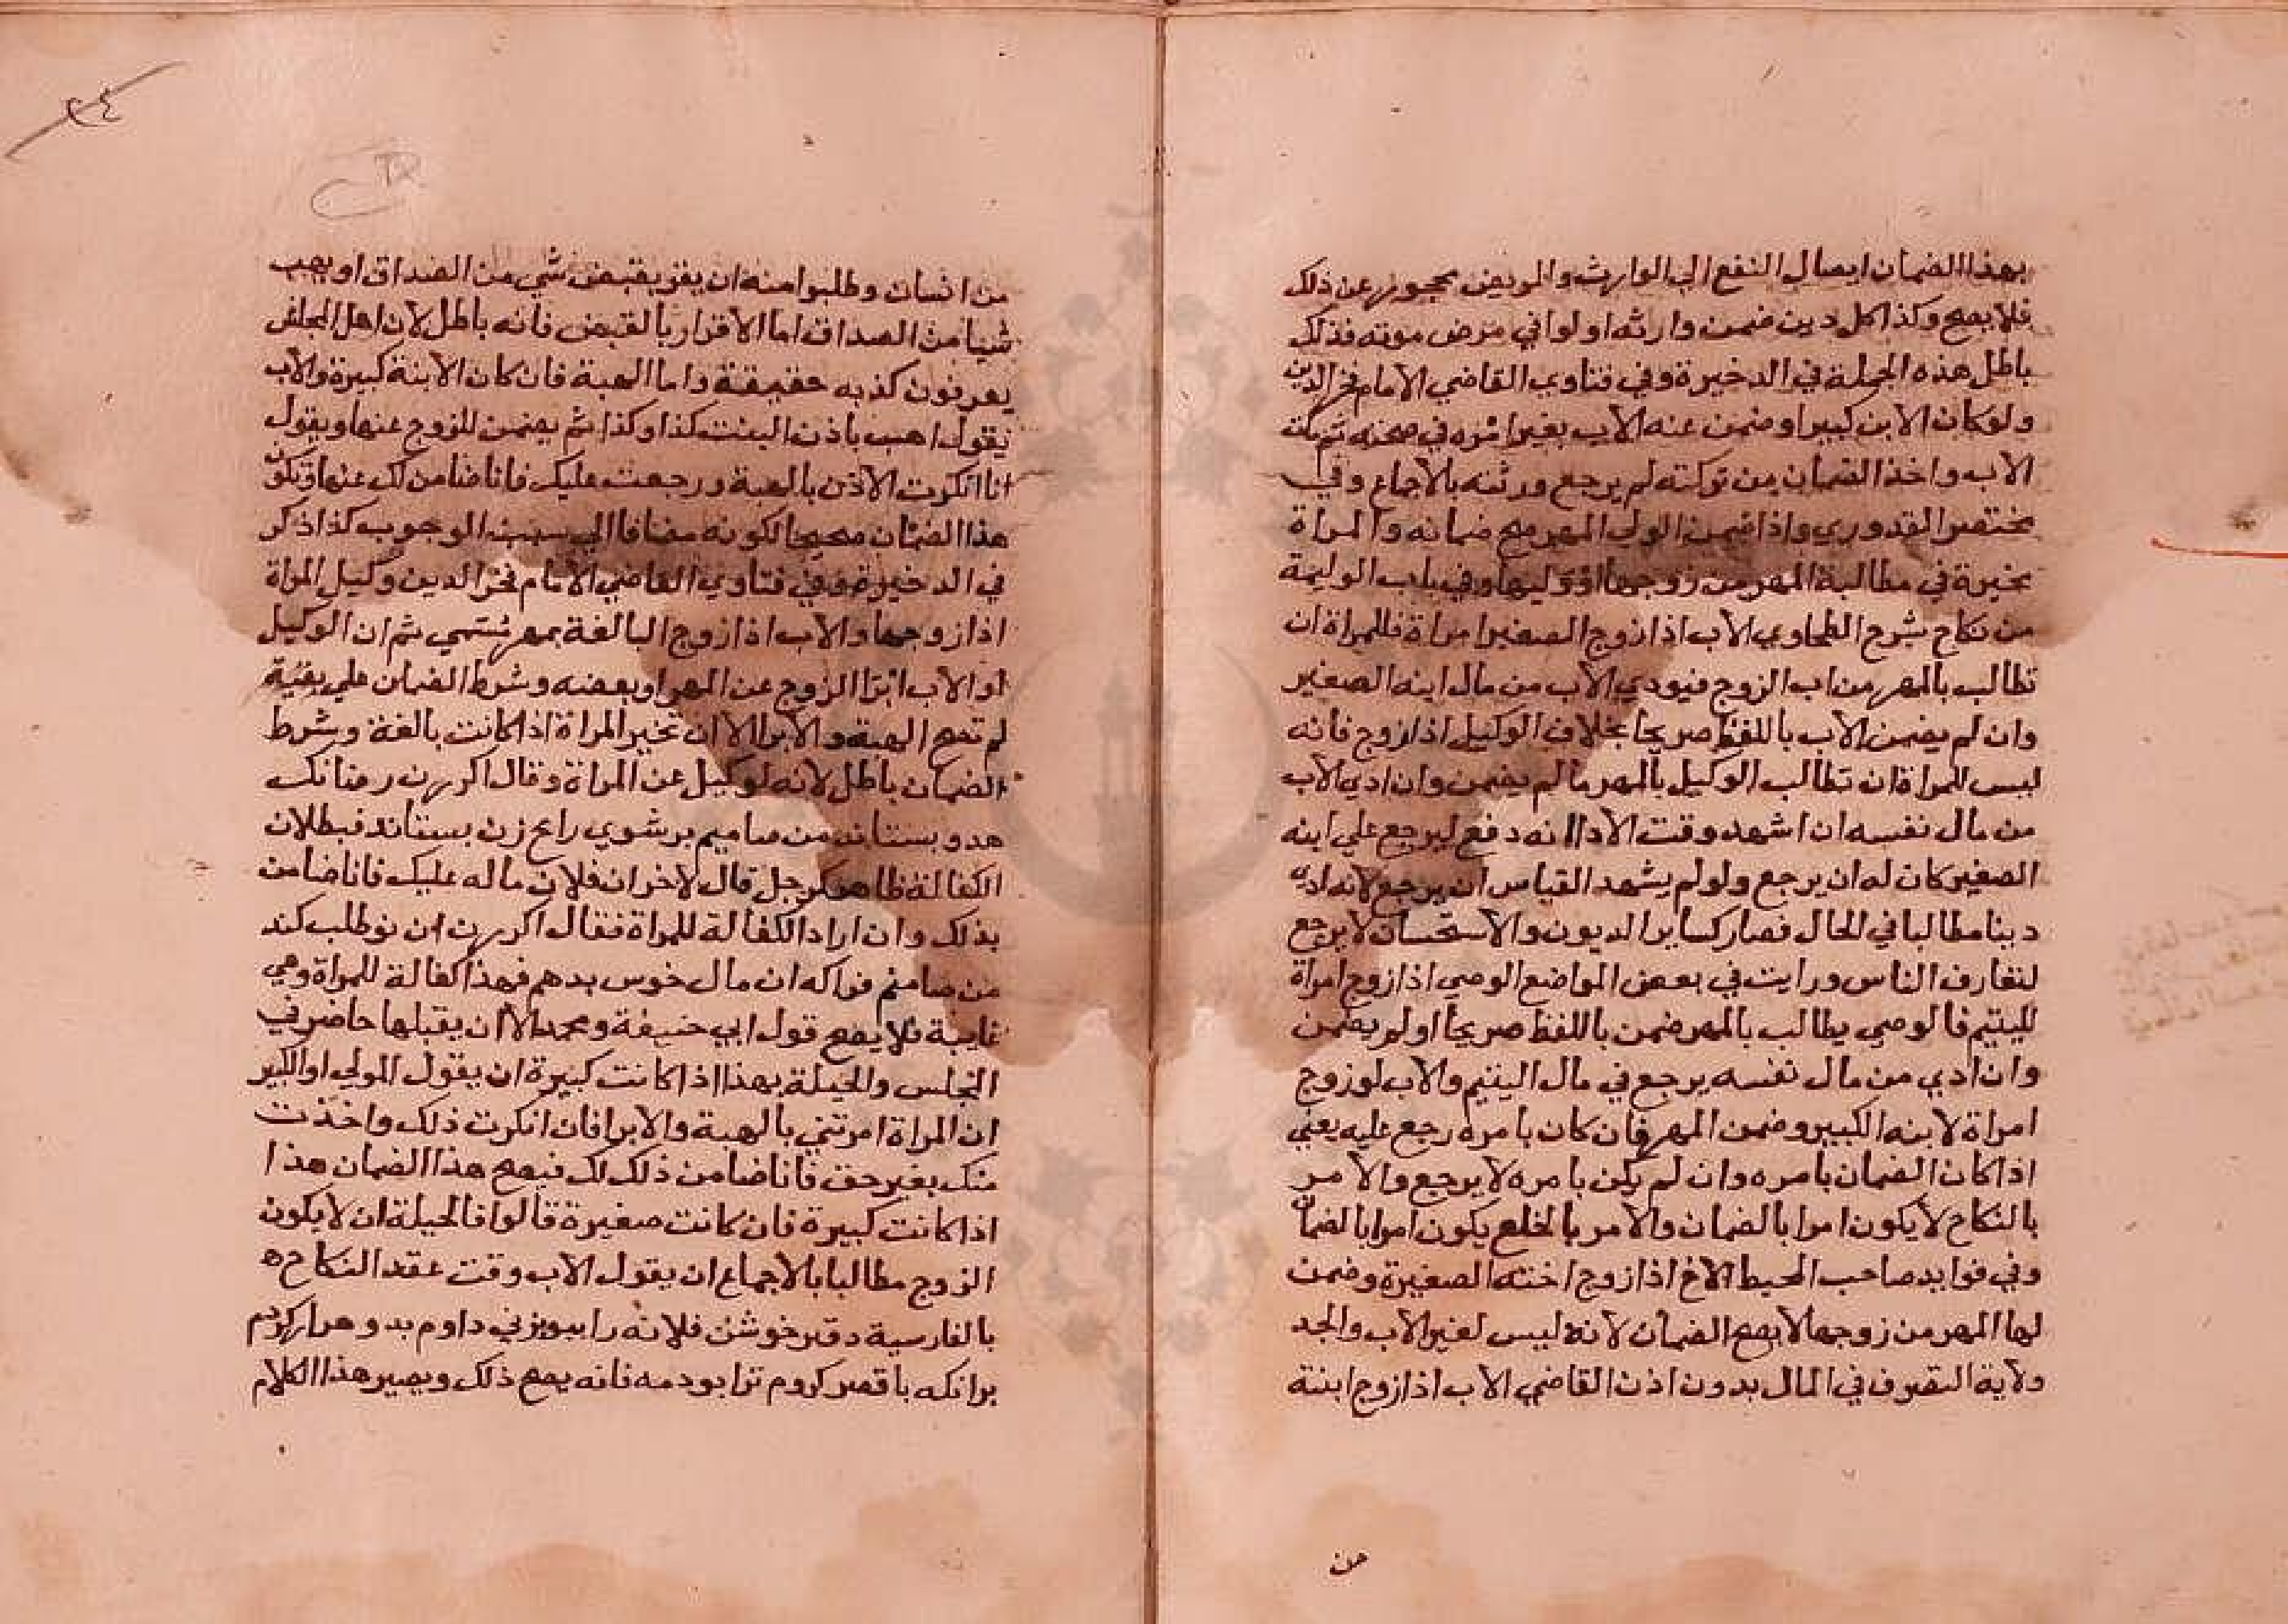 بهذا الضمان ايصال النفع الي الوارث والمريض محجور عن ذلك
فلا يصح وكذا كل دين ضمن وارثه او لو اني مرض موته فذلك
باطل هذه الجملة في الدخيرة وفي فتاوي القاضي الامام فخر الدين
ولو كان الابن كبيرا وضمن عنه الاب بغير امره في صحته ثم مات
الاب واخذ الضمان من تركته لم يرجع ورثته بالاجماع وفي
مختصر القدوري واذا ضمن الولي المهر صح ضمانه والمراة
مخيرة في مطالبة المهر من زوجها او وليها وفي باب الوليمة
من نكاح شرح الطحاوي الاب اذا زوج الصغير امراة فللمراة ان
تطالب بالمهر من اب الزوج فيودي الاب من مال ابنه الصغير
وان لم يضمن الاب باللفظ صريحا بخلاف الوكيل اذا زوج فانه
ليس للمراة ان تطالب الوكيل بالمهر ما لم يضمن وان ادي الاب
من مال نفسه ان اشهد وقت الادا انه دفع ليرجع علي ابنه
الصغير كان له ان يرجع ولو لم يشهد القياس ان يرجع لانه ادي
دينا مطالبا في الحال فصار كساير الديون والاستحسان لا يرجع
لتعارف الناس ورايت في بعض المواضع الوصي اذا زوج امراة
لليتيم فالوصي يطالب بالمهر ضمن باللفظ صريحا او لم يضمن
وان ادي من مال نفسه يرجع في مال اليتيم والاب لو زوج
امراة لابنه الكبير وضمن المهر فان كان بامره رجع عليه يعني
اذا كان الضمان بامره وان لم يكن بامره لا يرجع والامر
بالنكاح لا يكون امرا بالضمان والامر بالخلع يكون امرا بالضمان
وفي فوايد صاحب المحيط الاخ اذا زوج اخته الصغيرة وضمن
لها المهر من زوجها لا يصح الضمان لانه ليس لغير الاب والجد
ولاية التصرف في المال بدون اذن القاضي الاب اذا زوج ابنته
من
من انسان وطلبوا منه ان يقر بقبض شي من الصداق او يهب
شيا من الصداق اما الاقرار بالقبض فانه باطل لان اهل المجلس
يعرفون كذبه حقيقة واما الهبة فان كان الابنة كبيرة والاب
يقول اهب باذن البنت كذا وكذا ثم يضمن للزوج عنها ويقول
انا انكرت الاذن بالهبة ورجعت عليك فانا ضامن لك عنها ويكون
هذا الضمان صحيحا لكونه مضافا الي سبب الوجوب كذا ذكر
في الدخيرة وفي فتاوي القاضي الامام فخر الدين وكيل المراة
اذا زوجها والاب اذا زوج البالغة بمهر مسمي ثم ان الوكيل
او الاب ابرا الزوج عن المهر او بعضه وشرط الضمان علي بقية
لم تصح الهبة والابرا الا ان تخير المراة اذا كانت بالغة وشرط
الضمان باطل لانه لوكيل عن المراة وقال اكر
هد وبستاند من
الكفالة ظاهر كرجل قال لاخر ان فلان ماله عليك فانا ضامن
بذلك وان اراد الكفالة للمراة فقال اكر
من ضامنم كه ان مال بدهم فهذا كفالة للمراة وهي
غايبة فلا يصح قول ابي حنيفة ومحمد الا ان يقبلها حاضر في
المجلس والحيلة بهذا اذا كانت كبيرة ان يقول المولي او الكبير
ان المراة امرتني بالهبة والابرا فان انكرت ذلك واخذت
منك بغير حق فانا ضامن ذلك لك فيصح هذا الضمان هذا
اذا كانت كبيرة فان كانت صغيرة قالوا فالحيلة ان لا يكون
الزوج مطالبا بالاجماع ان يقول الاب وقت عقد النكاح ه
بالفارسية فلانه را داوم بدو
برانكه ترا فانه يصح ذلك ويصير هذا الكلام